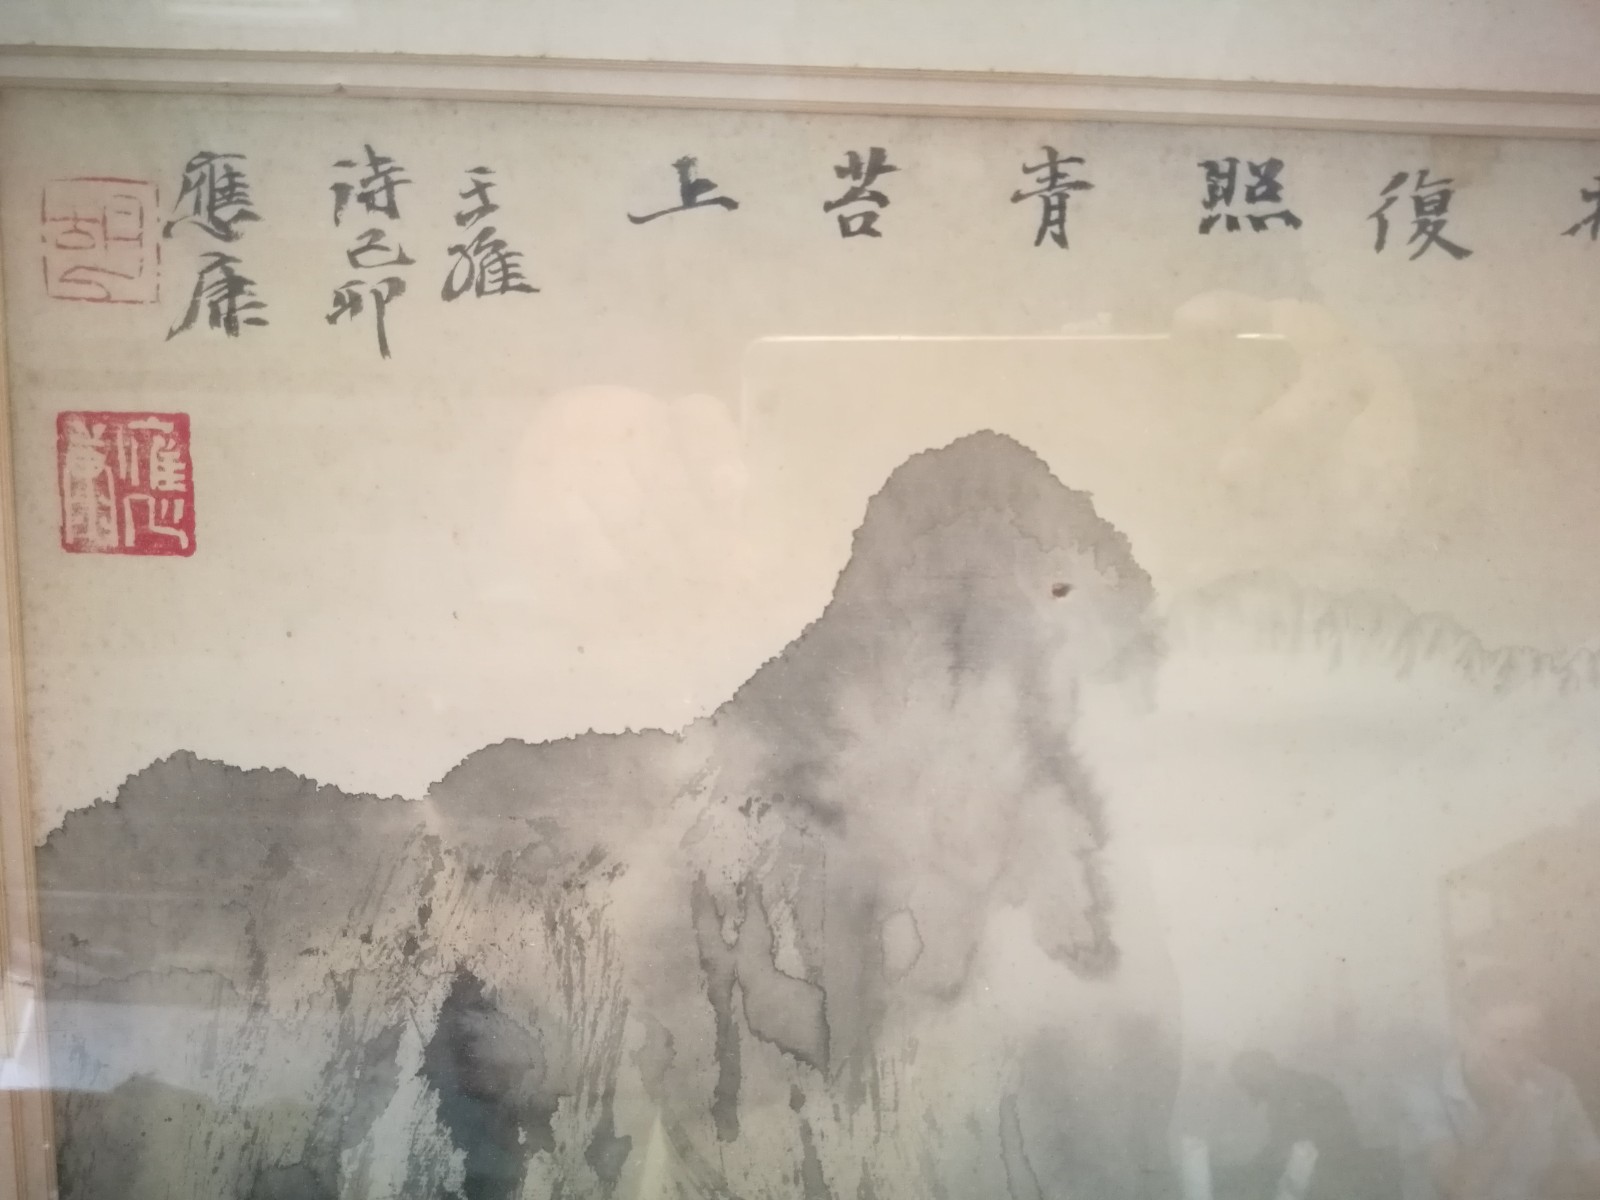 復照青苔上
王維
詩己卯
應康
胡
應康